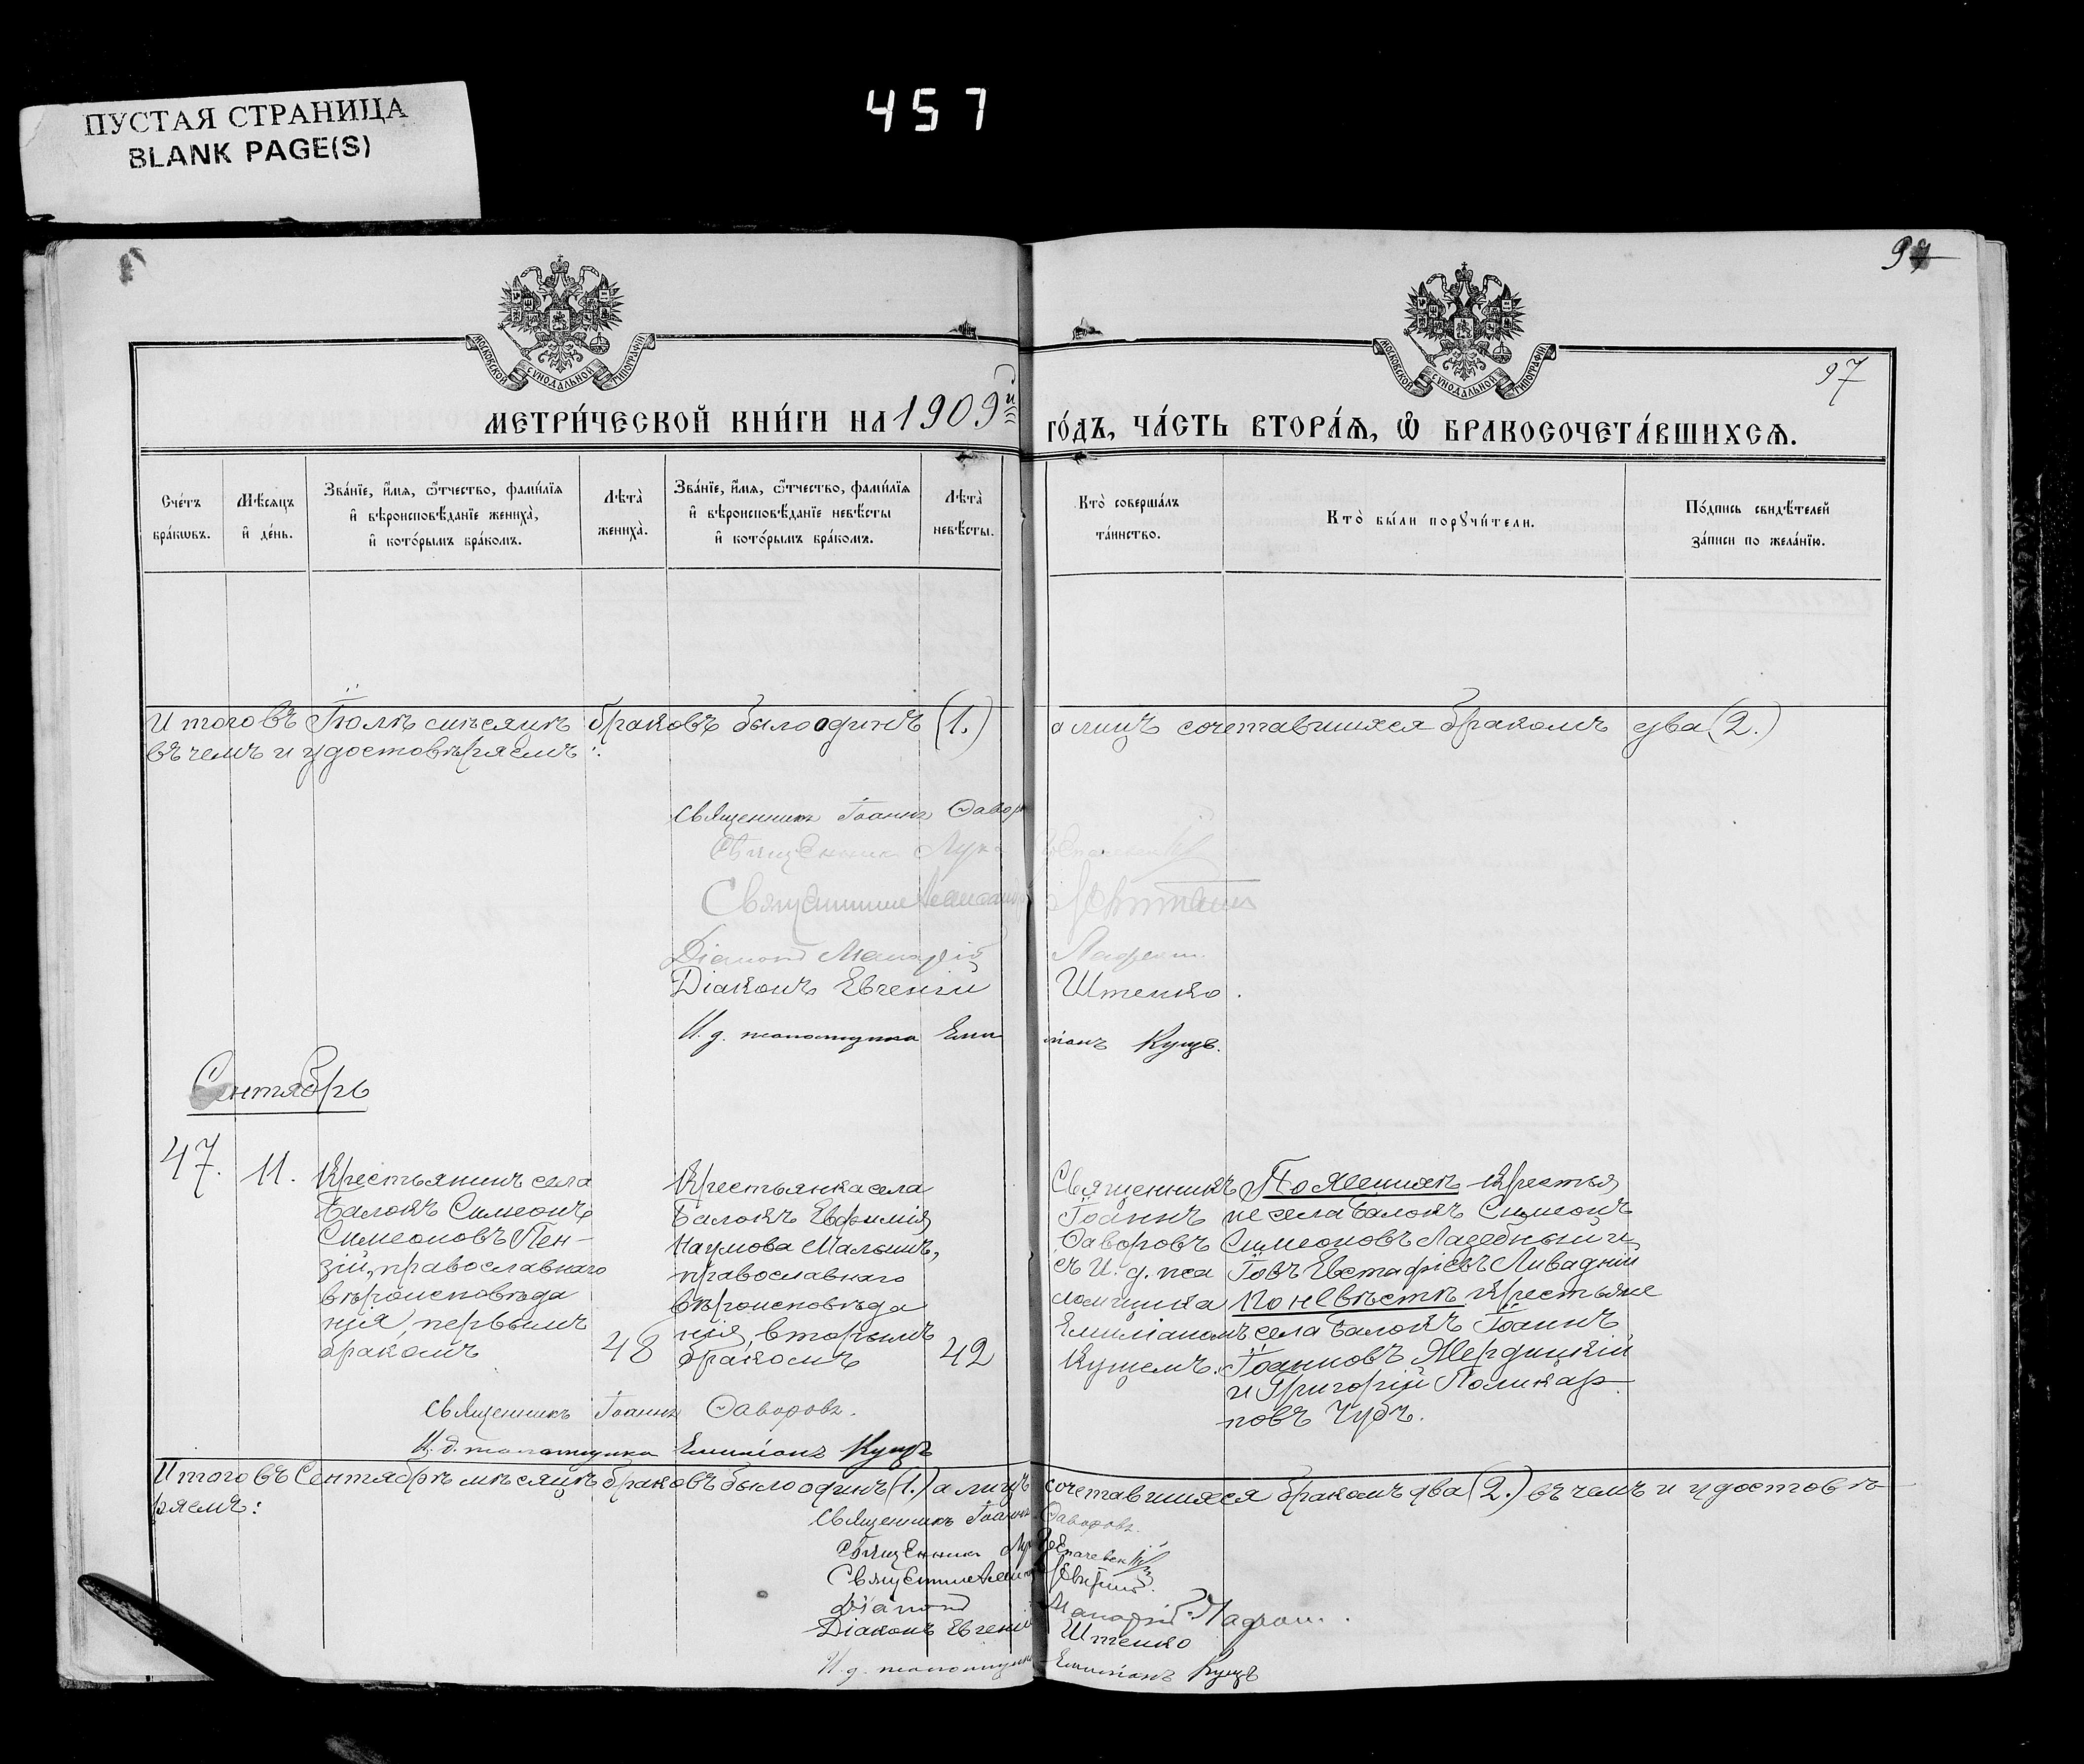 ПУСТАЯ СТРАНИЦА
BLANK PAGE(S)
457
97
МОСКОВСКОЙ СѴНОДАЛЬНОЙ ТИПОГРАФІИ
МОСКОВСКОЙ СѴНОДАЛЬНОЙ ТИПОГРАФІИ
97
МЕТРИ́ЧЕСКОЙ КНИ́ГИ НА 1909й ГО́ДЪ, ЧА́СТЬ ВТОРА́Ѧ, Ѽ БРАКОСОЧЕТА́ВШИХСѦ.
Сче́тъ бра́кѡвъ.
Мѣ́сѧцъ и҆ де́нь.
Зва́нїе, и҆́мѧ, ѻ҆́тчество, фами́лїѧ и҆ вѣроисповѣ́данїе жениха̀, и҆ кото́рымъ бра́комъ.
Лѣта̀ жениха̀.
Зва́нїе, и҆́мѧ, ѻ҆́тчество, фами́лїѧ и҆ вѣроисповѣ́данїе невѣ́сты и҆ кото́рымъ бра́комъ.
Лѣта̀ невѣ́сты.
Кто̀ соверша́лъ та́инство.
Кто̀ бы́ли порꙋчи́тели.
По́дпись свидѣ́телей за́писи по жела́нїю.
Итого въ Іюлѣ мѣсяцѣ браковъ было одинъ (1.) а лицъ сочетавшихся бракомъ два (2.)
въ чемъ и удостовѣряемъ:
Священникъ Іоаннъ Ѳаворовъ
Священникъ Лука
Священникъ Александръ
Діаконъ Макарій
Діаконъ Евгеній Штенко.
И. д. псаломщика Емиліанъ Кущъ.
Сентябрь
47.
11.
Крестьянинъ села
Балокъ Симеонъ
Симеоновъ Пен-
зій, православнаго
вѣроисповѣда
нія, первымъ
бракомъ
48
Крестьянка села
Балокъ Евфимія
Наумова Малышъ,
православнаго
вѣроисповѣда
нія, вторымъ
бракомъ
42
Священникъ
Іоаннъ
Ѳаворовъ
съ И. д. пса
ломщика
Емиліаномъ
Кущемъ.
По женихѣ крестья
не села Балокъ Симеонъ
Симеоновъ Лазебный и
Іовъ Евстафіевъ Ливадній
По невѣстѣ крестьяне
села Балокъ Іоаннъ
Іоанновъ Жердицкій
и Григорій Поликар
повъ Чубъ.
Священникъ Іоаннъ Ѳаворовъ.
И. д. псаломщика Емиліанъ Кущъ
Итого въ Сентябрѣ мѣсяцѣ браковъ было одинъ (1.) а лицъ сочетавшихся бракомъ два (2.) въ чемъ и удостовѣ
ряемъ:
Священникъ Іоаннъ Ѳаворовъ.
Священникъ Лука
Священникъ
Діаконъ Макарій
Діаконъ Евгеній Штенко
И. д. псаломщика Емиліанъ Кущъ